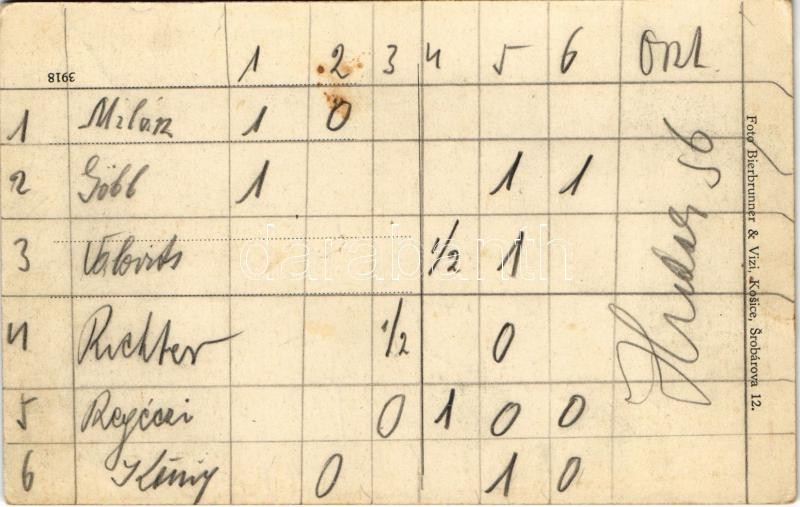 1 2 3 4 5 6
3918
1 Milár 1 0
2 Göbl 1 1 1
3 1/2 1
4 Richter 1/2 0
5 0 1 0 0
6 König 0 1 0
56
Foto Bierbrunner & Vizi, Košice, Šrobárova 12.
darabanth